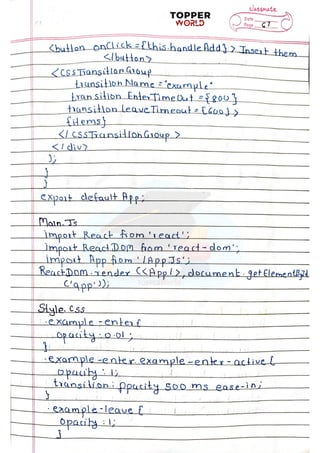 classmate
TOPPER
WORLD
Date
Page 67
<button onClick={this.handleAdd}> Insert them
</button>
<CSSTransitionGroup
transitionName="example"
transition EnterTimeOut={800}
transition LeaveTimeout={600}>
{items}
</CSSTransitionGroup>
</div>
);
}
}
export default App;
Main.Js
import React from 'react';
import ReactDOM from 'react-dom';
import App from './App Js';
ReactDOM.render (<App/>, document.getElementById
('app'));
Style.css
.example-enter{
opacity:0.01;
}
.example-enter.example-enter-active{
opacity:1;
transition: opacity 500 ms ease-in;
}
.example-leave{
opacity:1;
}